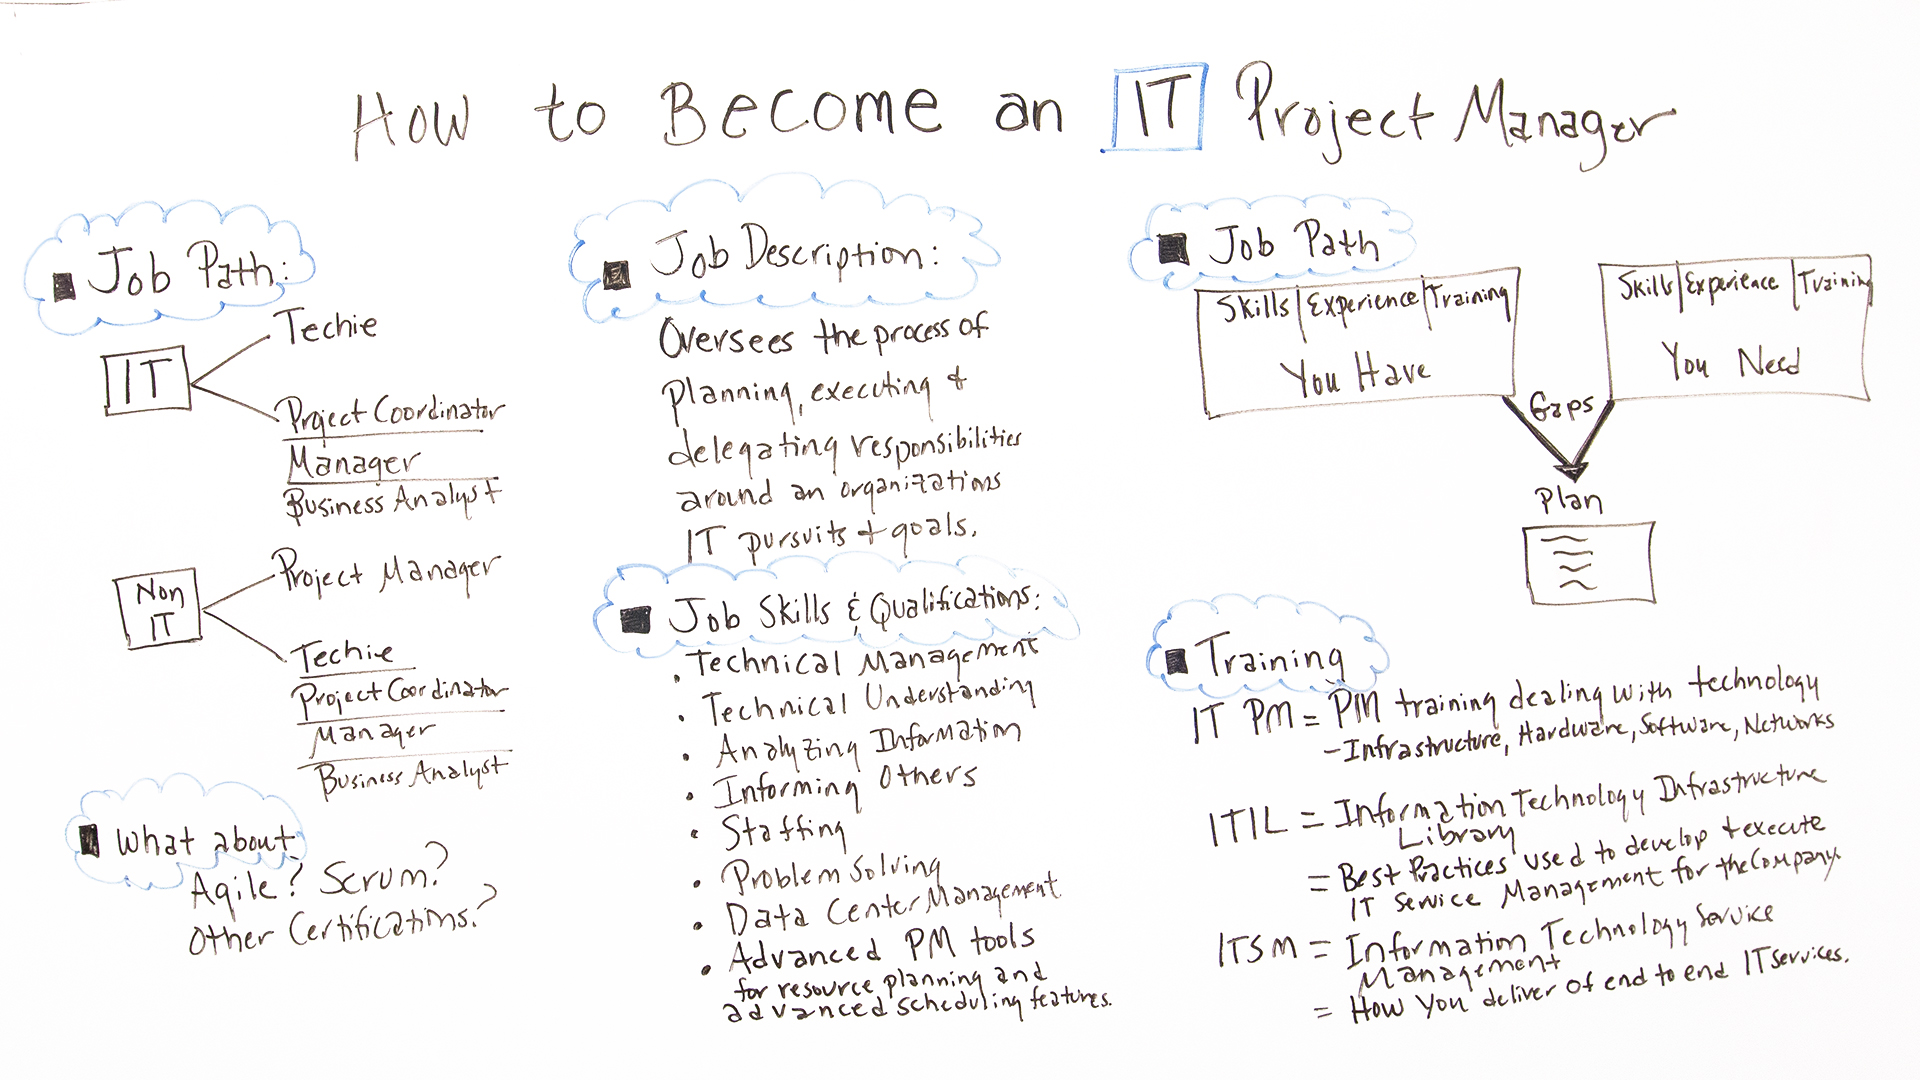 How to Become an IT Project Manager
Job Path:
IT
Techie
Project Coordinator
Manager
Business Analyst
Non
IT
Project Manager
Techie
Project Coordinator
Manager
Business Analyst
What about
Agile? Scrum?
Other Certifications?
Job Description:
Oversees the process of
planning, executing &
delegating responsibilities
around an organizations
IT pursuits & goals.
Job Skills & Qualifications:
• Technical Management
• Technical Understanding
• Analyzing Information
• Informing Others
• Staffing
• Problem Solving
• Data Center Management
• Advanced PM tools
for resource planning and
advanced scheduling features.
Job Path
Skills | Experience | Training
You Have
Skills | Experience | Training
You Need
Gaps
Plan
Training
IT PM = PM training dealing with technology
- Infrastructure, Hardware, Software, Networks
ITIL = Information Technology Infrastructure
Library
= Best Practices used to develop & execute
IT Service Management for the Company.
ITSM = Information Technology Service
Management
= How You deliver of end to end IT services.